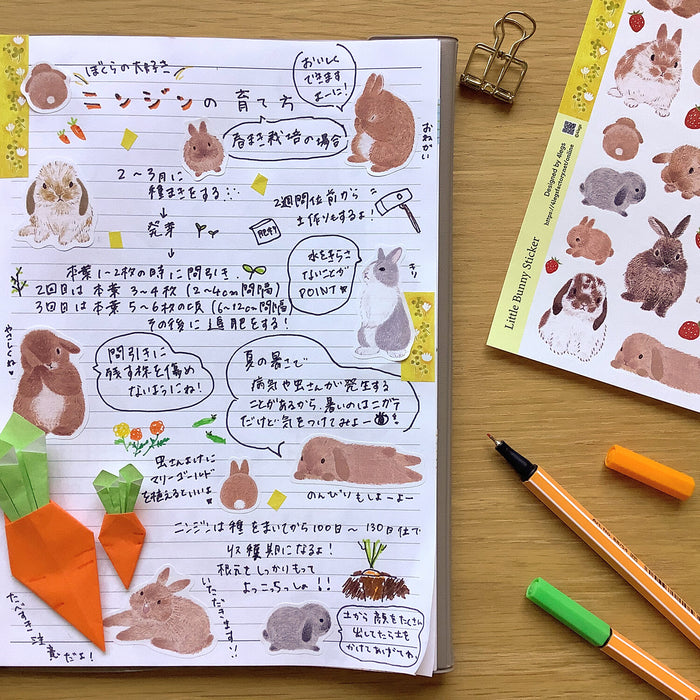 ぼくらの大好き
ニンジンの育て方
おいしく
できます
よーに!
おねがい
春まき栽培の場合
2〜3月に
種まきをする…
↓
発芽
↓
2週間位前から
土作りもするよ!
肥料
本葉1〜2枚の時に間引き、
2回目は本葉3〜4枚(2〜4cm間隔)
3回目は本葉5〜6枚の頃(6〜12cm間隔)
その後に追肥をする!
水をきらさ
ないことが
POINT
キリ
やさしくね
間引きに
残す株を傷め
ないようにね!
夏の暑さで
病気や虫さんが発生する
ことがあるから、暑いのはニガテ
だけど気をつけてみよー!
虫さんよけに
マリーゴールド
を植えるといいよ
のんびりもしよーよー
ニンジンは種をまいてから100日〜130日位で
収穫期になるよ!
根元をしっかりもって
よっこらっしょの!!
いただきます!!
たべすぎ注意だよ!
土から顔をたくさん
出してたら土を
かけてあげてね。
Little Bunny Sticker
Designed by 4legs
https://4legsfactory.net/online